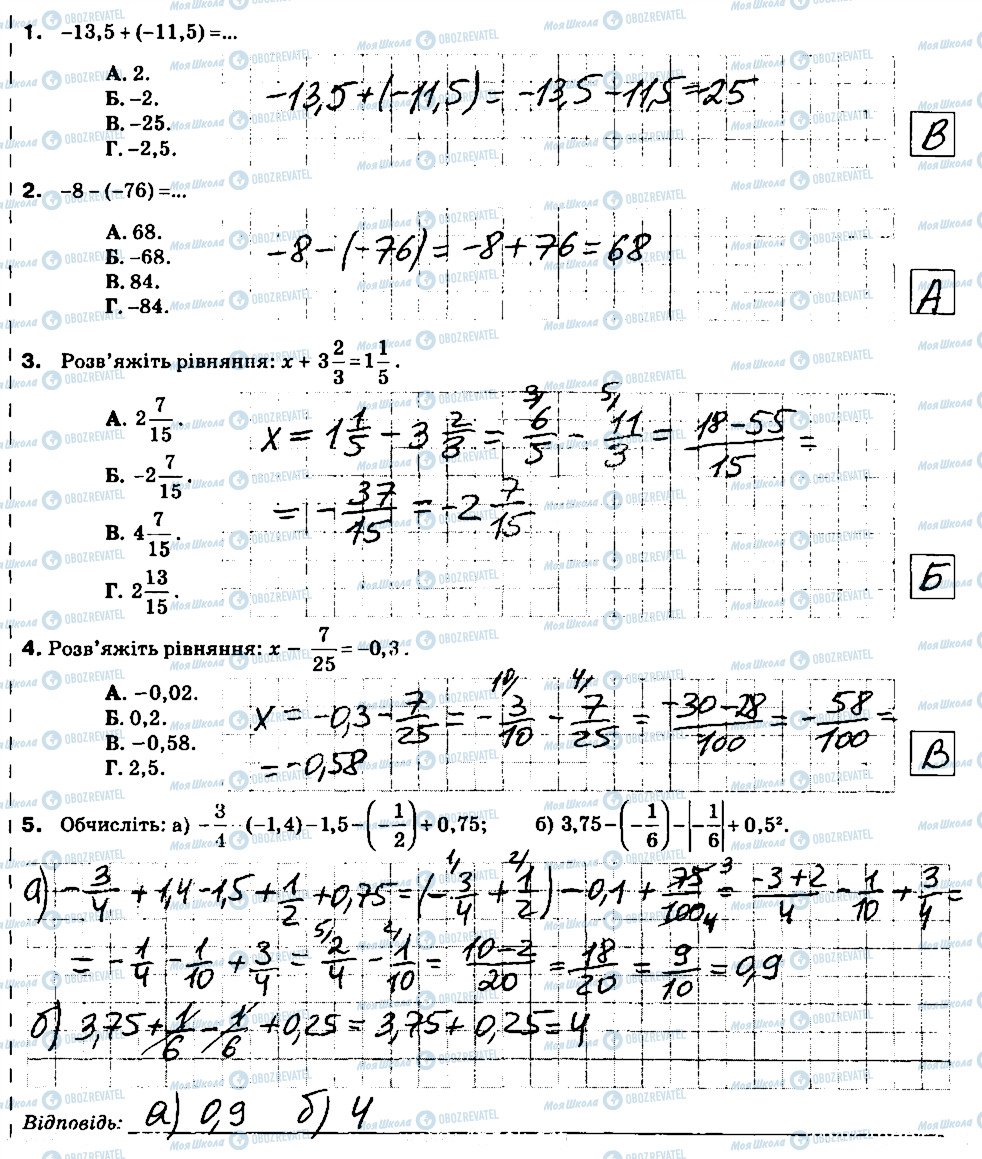 1. –13,5 + (–11,5) =...
А. 2.
Б. –2.
В. –25.
Г. –2,5.
-13,5+(-11,5)= -13,5-11,5=-25
В
2. –8 – (–76) =...
А. 68.
Б. –68.
В. 84.
Г. –84.
-8-(-76)= -8+76=68
А
3. Розв'яжіть рівняння: x + 3 2/3 = 1 1/5.
А. 2 7/15.
Б. –2 7/15.
В. 4 7/15.
Г. 2 13/15.
x = 1 1/5 - 3 2/3 = 3/ 6/5 - 5/ 11/3 = (18-55)/15 =
= - 37/15 = -2 7/15
Б
4. Розв'яжіть рівняння: x – 7/25 = –0,3.
А. –0,02.
Б. 0,2.
В. –0,58.
Г. 2,5.
x = -0,3 - 7/25 = - 10/ 3/10 - 4/ 7/25 = (-30-28)/100 = - 58/100 =
= -0,58
В
5. Обчисліть: а) –3/4 – (–1,4) – 1,5 – (–1/2) + 0,75; б) 3,75 – (–1/6) – |–1/6| + 0,5².
а) - 3/4 + 1,4 - 1,5 + 1/2 + 0,75 = (- 1/ 3/4 + 2/ 1/2) - 0,1 + 75 3/100 4 = (-3+2)/4 - 1/10 + 3/4 =
= - 1/4 - 1/10 + 3/4 = 5/ 2/4 - 2/ 1/10 = (10-2)/20 = 18/20 = 9/10 = 0,9
б) 3,75 + 1/6 - 1/6 + 0,25 = 3,75 + 0,25 = 4
Відповідь: а) 0,9 б) 4
МояШкола OBOZREVATEL